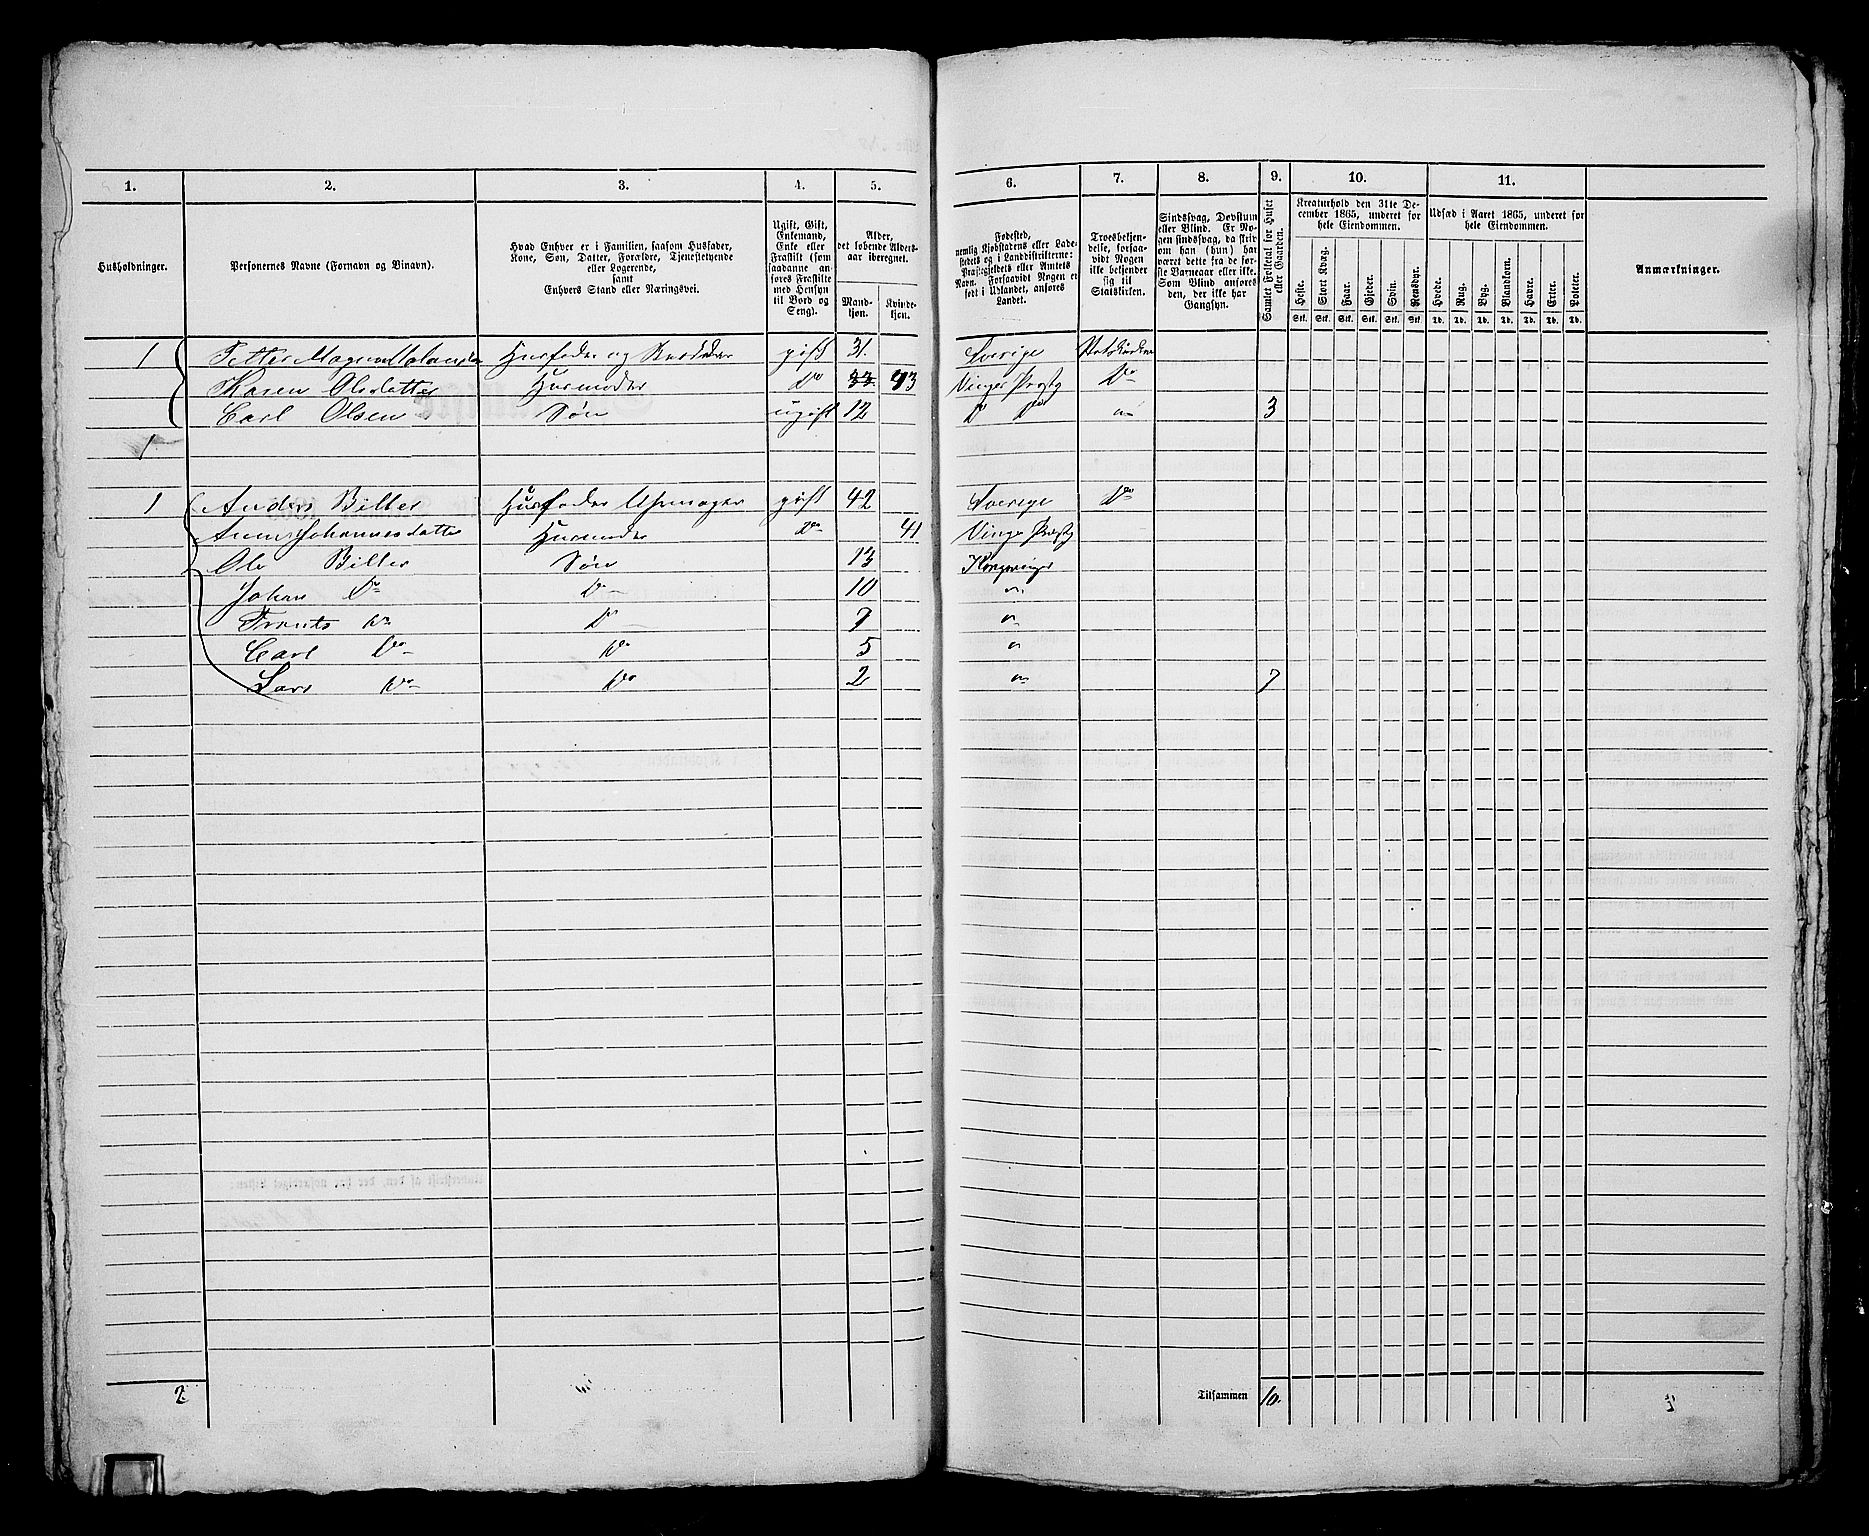 1. 2. 3. 4. 5. 6. 7. 8. 9. 10. 11.
Husholdninger.
Personernes Navne (Fornavn og Binavn).
Hvad Enhver er i Familien, saasom Husfader,
Kone, Søn, Datter, Forældre, Tjenestetyende
eller Logerende,
samt
Enhvers Stand eller Næringsvei.
Ugift, Gift,
Enkemand,
Enke eller
Fraskilt (som
saadanne an-
føres Fraskilte
med Hensyn
til Bord og
Seng).
Alder,
det løbende Alders-
aar iberegnet.
Mand-
kjøn.
Kvinde-
kjøn.
Fødested,
nemlig Kjøbstadens eller Lade-
stedets og i Landdistrikterne:
Præstegjeldets eller Amtets
Navn. Forsaavidt Nogen er
født i Udlandet, anføres
Landet.
Troesbekjen-
delse, forsaa-
vidt Nogen
ikke bekjender
sig til
Statskirken.
Sindssvag, Døvstum
eller Blind. Er No-
gen sindssvag, da skriv
om han (hun) har
været dette fra de før-
ste Barneaar eller ikke.
Som Blind anføres
den, der ikke har
Gangsyn.
Samlet Folketal for Huset
eller Gaarden.
Kreaturhold den 31te De-
cember 1865, underet for
hele Eiendommen.
Heste. Stort Kvæg. Faar. Gjeder. Svin. Rensdyr.
Stk. Stk. Stk. Stk. Stk. Stk.
Udsæd i Aaret 1865, underet for
hele Eiendommen.
Hvede. Rug. Byg. Blandkorn. Havre. Erter. Poteter.
Td. Td. Td. Td. Td. Td. Td.
Anmærkninger.
1 Petter Husfader og gift 31. Sverige Statskirken
Karen Olsdatter Husmoder Do 33 43 Vinger Præstg Do
Carl Olsen Søn ugift 12 Do Do " 3
1
1 Anders Biller Husfader Uhrmager gift 42 Sverige Do
Anne Johannesdatter Husmoder Do 41 Vinger Præstg
Ole Biller Søn 13 Kongsvinger
Johan Do Do 10 "
Frants Do Do 7 "
Carl Do Do 5 "
Lars Do Do 2 " 7
2 Tilsammen 10.